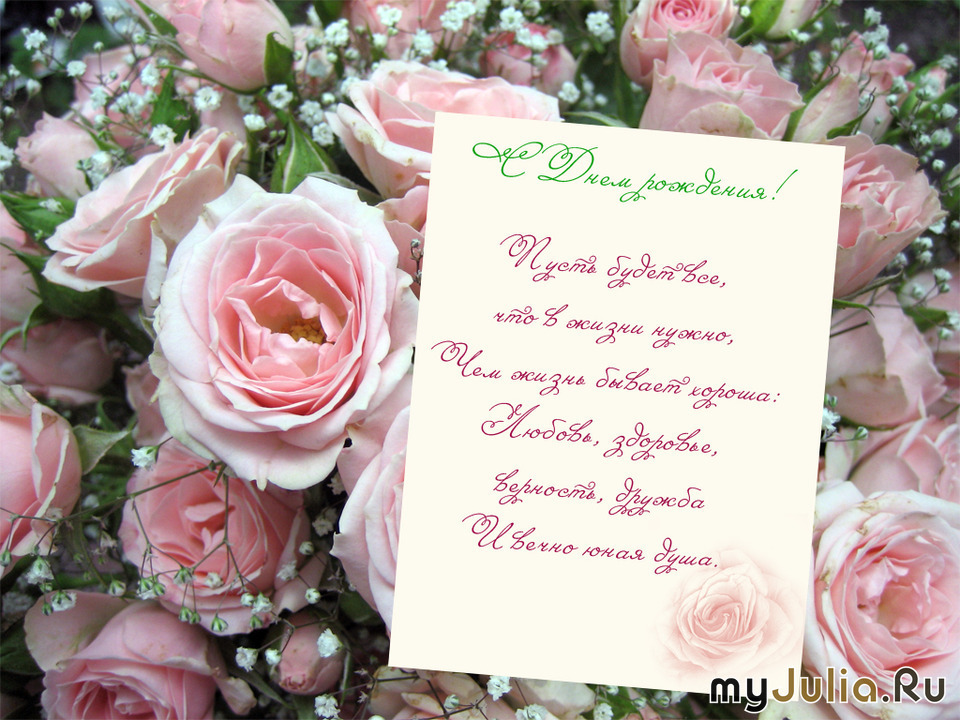 С Днем рождения!
Пусть будет все,
что в жизни нужно,
Чем жизнь бывает хороша:
Любовь, здоровье,
верность, дружба
И вечно юная душа.
myJulia.Ru